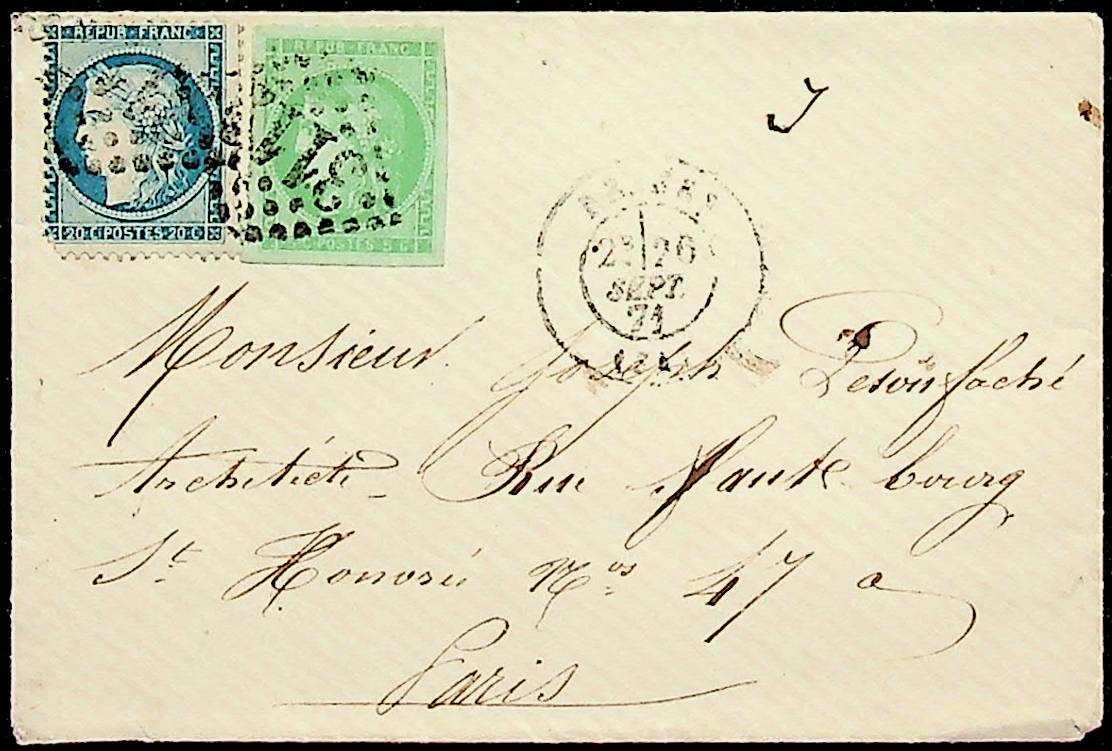 REPUB FRANC
20·C·POSTES·20·C
REPUB FRANC
POSTES
26
SEPT.
71
Monsieur Joseph
Architecte Rue faute bourg
St Honoré Nos 47 a
Paris